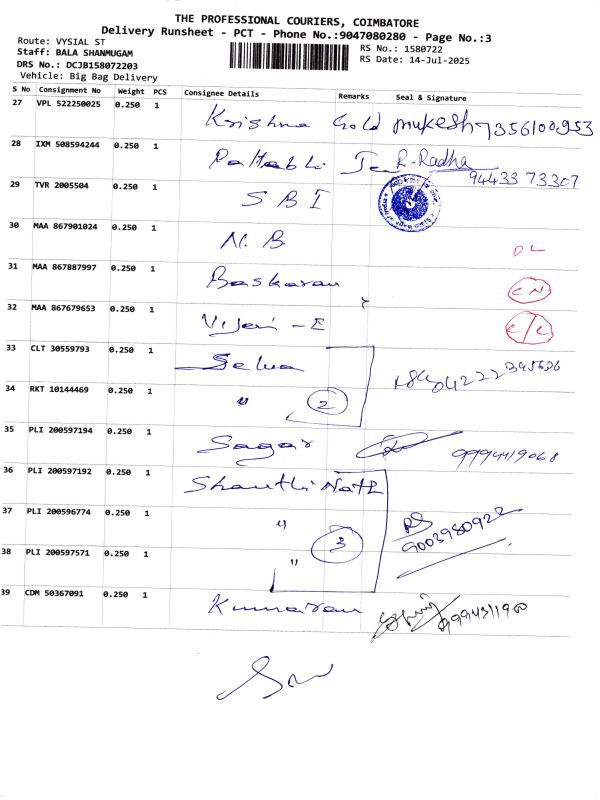 THE PROFESSIONAL COURIERS, COIMBATORE
Delivery Runsheet - PCT - Phone No.:9047080280 - Page No.:3
Route: VYSIAL ST
Staff: BALA SHANMUGAM
DRS No.: DCJB158072203
Vehicle: Big Bag Delivery
RS No.: 1580722
RS Date: 14-Jul-2025
S No Consignment No Weight PCS Consignee Details Remarks Seal & Signature
27 VPL 522250025 0.250 1 Krishna Gold mukesh 7356100953
28 IXM 508594244 0.250 1 Pattabhi R-Radha
94433 73307
29 TVR 2005504 0.250 1 S B I
30 MAA 867901024 0.250 1 N. B DL
31 MAA 867887997 0.250 1 Baskaran CN
32 MAA 867679653 0.250 1 Vijai - E C/L
33 CLT 30559793 0.250 1 Selva
34 RKT 10144469 0.250 1 " 2
35 PLI 200597194 0.250 1 Sagar 9994419068
36 PLI 200597192 0.250 1 Shanthi Nath
37 PLI 200596774 0.250 1 " RS
9003980922
38 PLI 200597571 0.250 1 " 3
39 CDM 50367091 0.250 1 Kumaran 9994311900